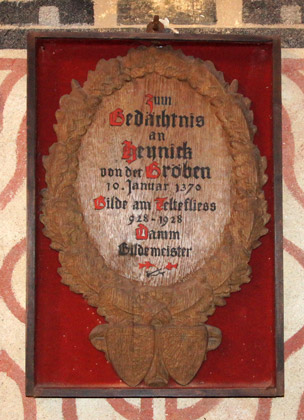 Zum
Gedächtnis
an
Heynick
von der Gröben
10. Januar 1370
Gilde am Teltefliess
928-1928
Damm
Gildemeister